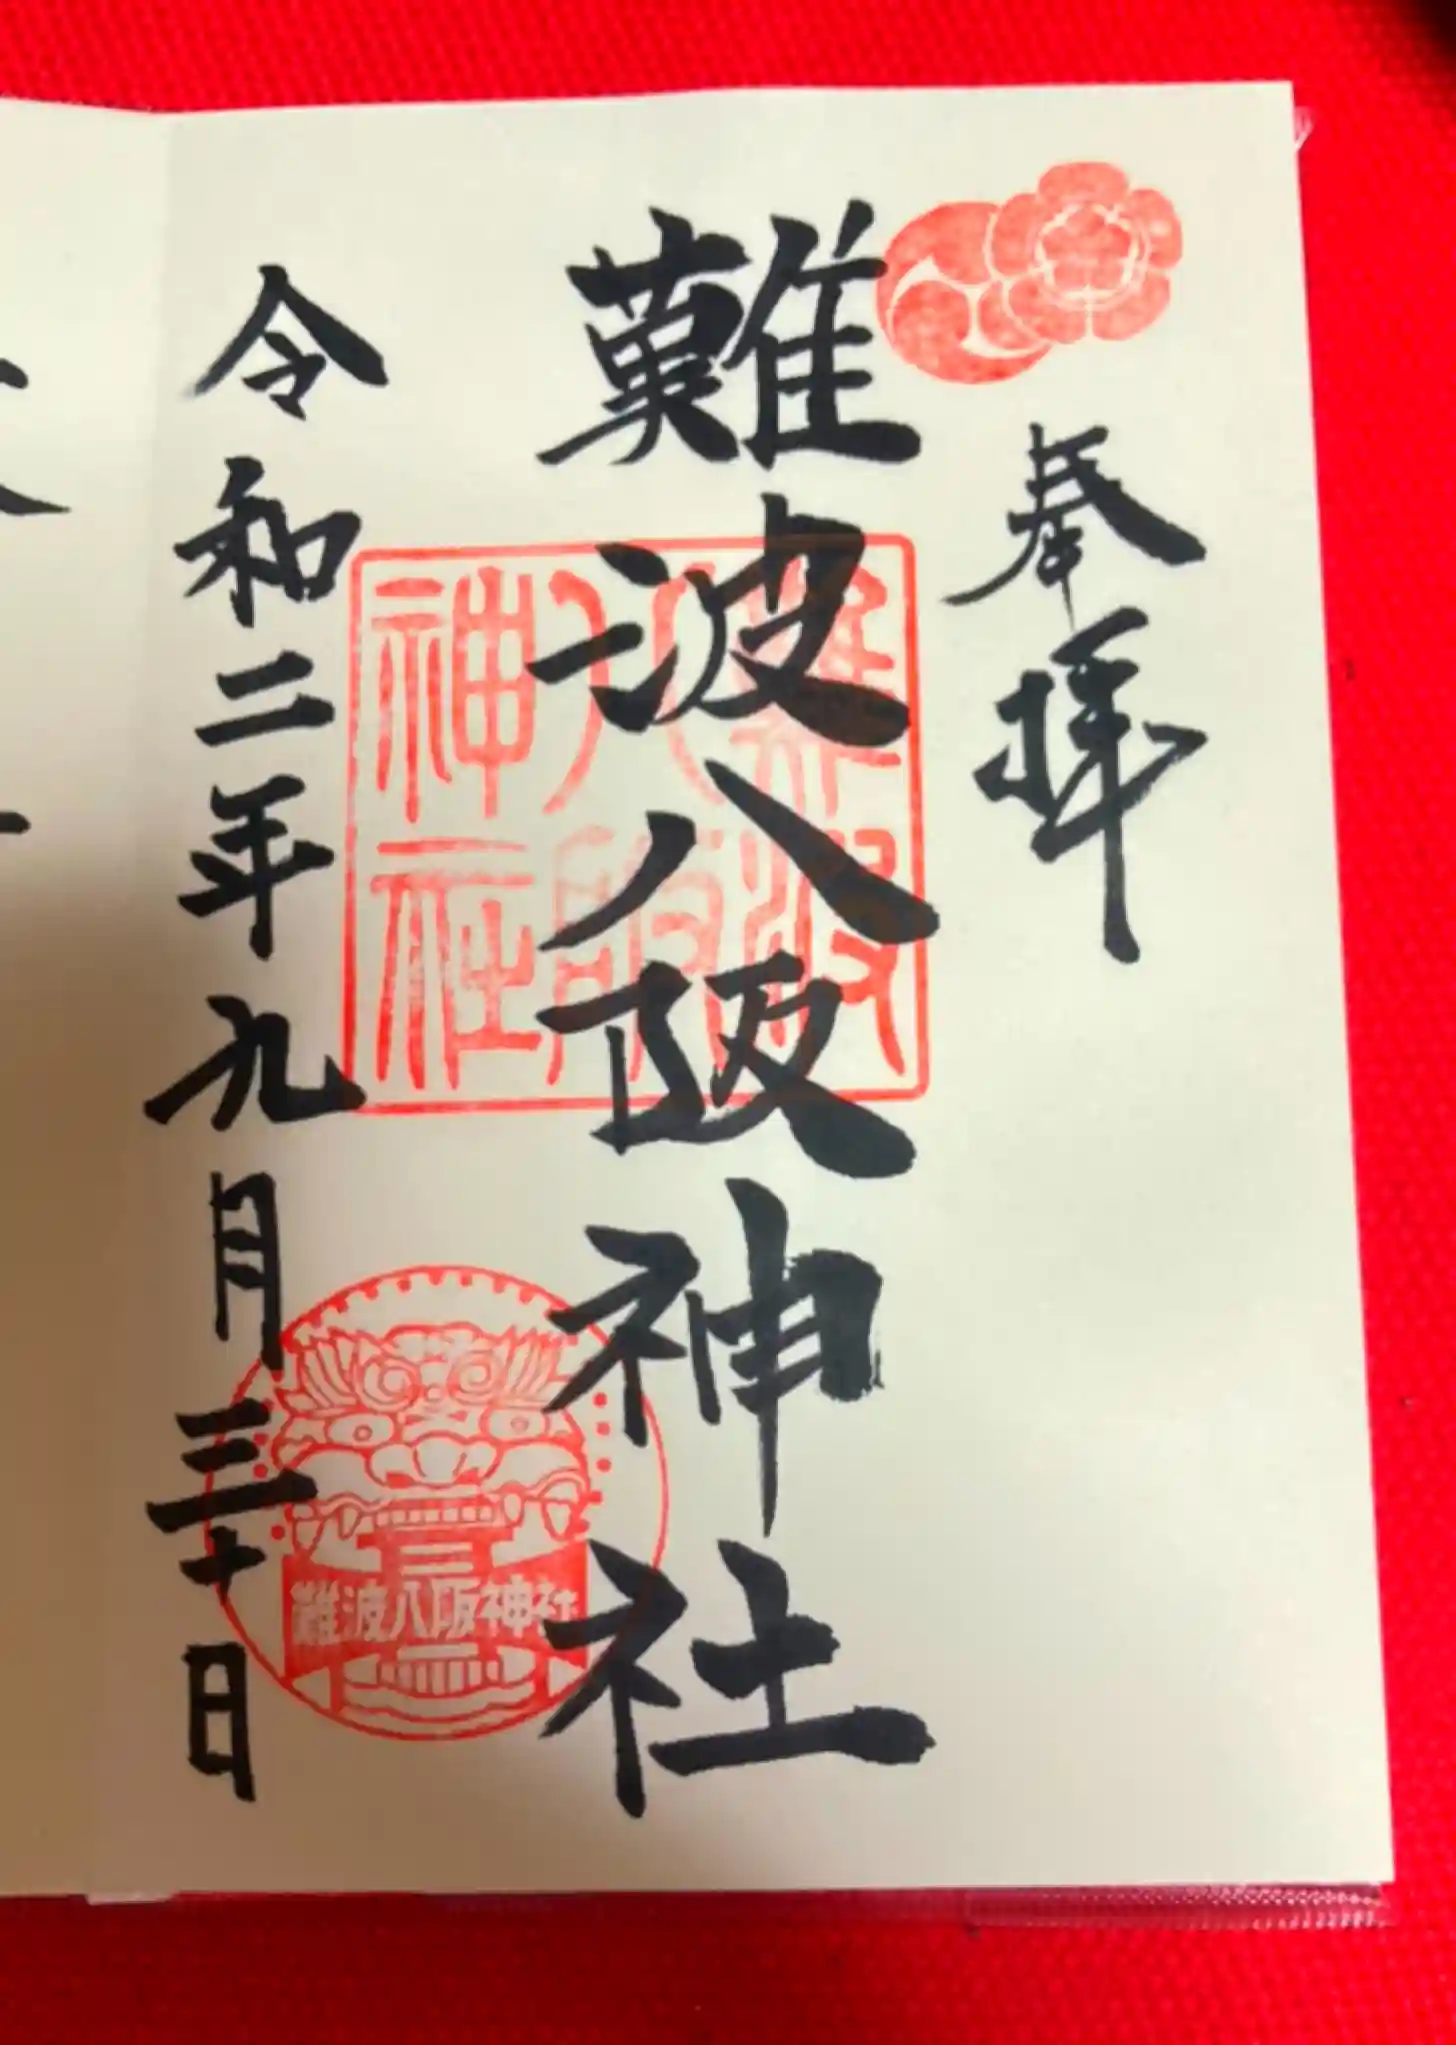 奉拝
難波八阪神社
難波
八阪
神社
難波八阪神社
令和二年九月三十日